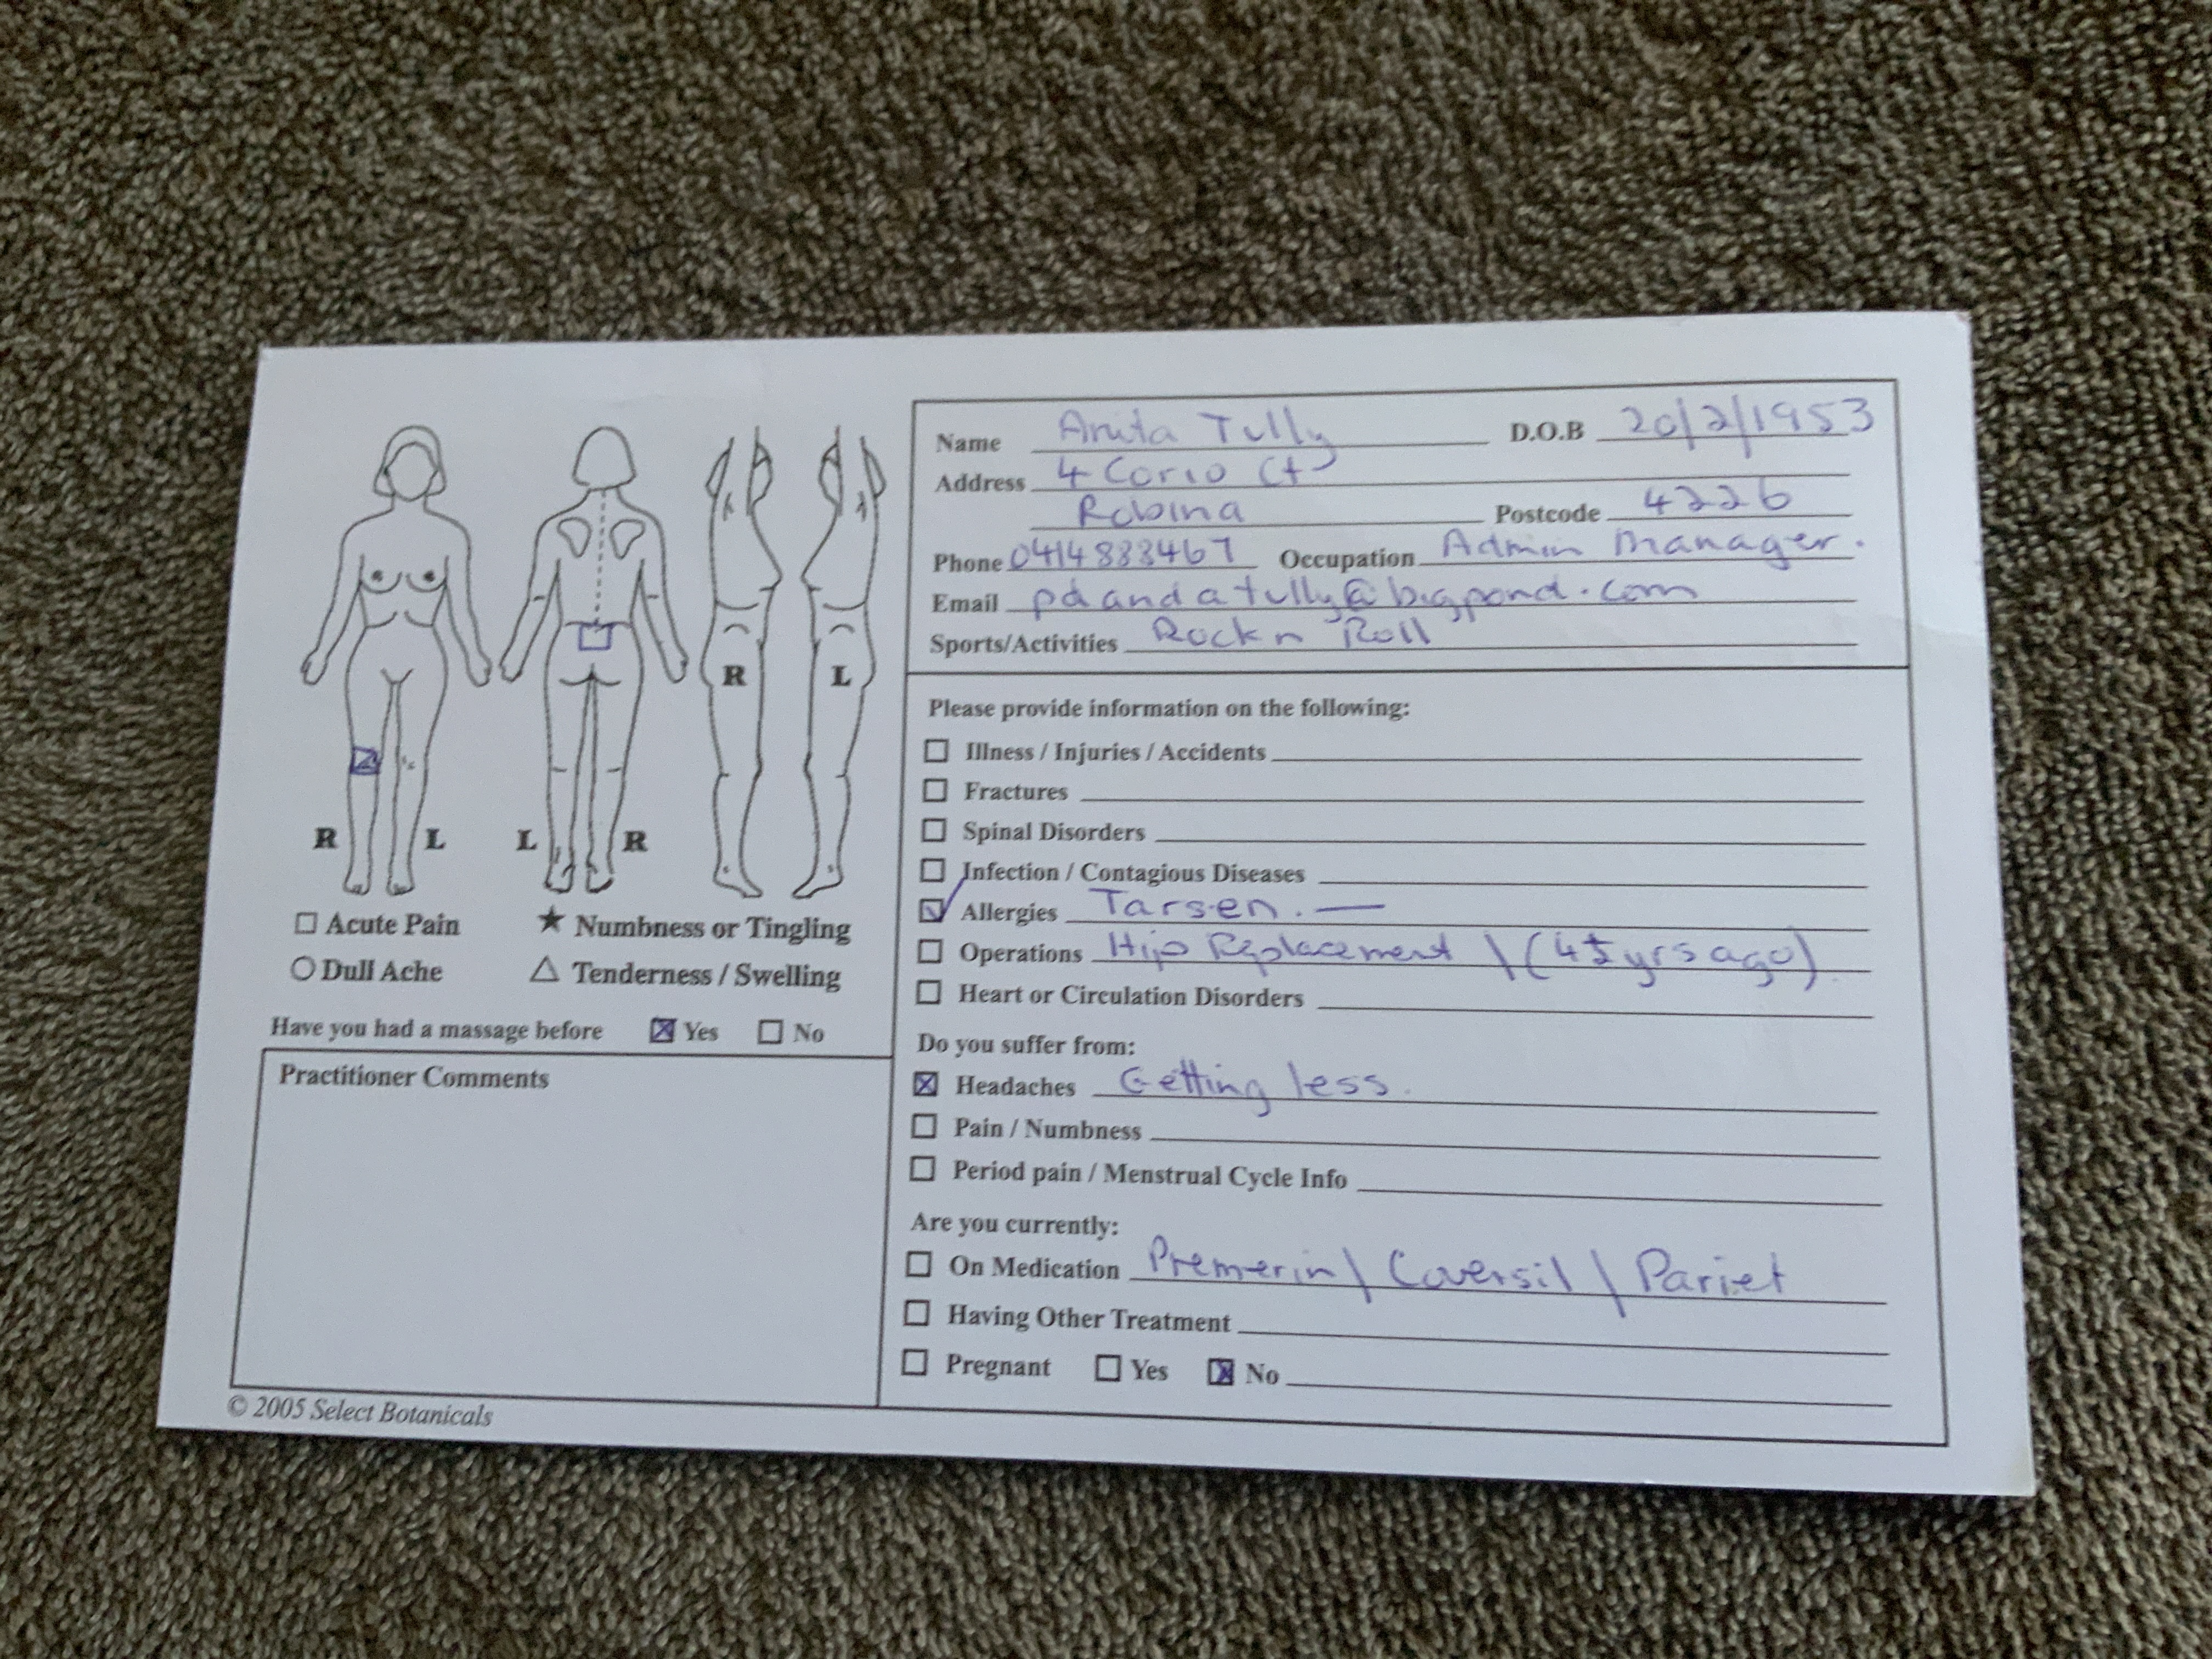 R L L R R L
□ Acute Pain ★ Numbness or Tingling
○ Dull Ache △ Tenderness / Swelling
Have you had a massage before ☒ Yes □ No
Practitioner Comments
© 2005 Select Botanicals
Name Anita Tully D.O.B 20/2/1953
Address 4 Corio Ct
Robina Postcode 4226
Phone 0414833467 Occupation Admin Manager.
Email pdandatully@bigpond.com
Sports/Activities Rock n Roll
Please provide information on the following:
□ Illness / Injuries / Accidents
□ Fractures
□ Spinal Disorders
□ Infection / Contagious Diseases
☑ Allergies Tarsen. —
□ Operations Hip Replacement \ (4 yrs ago)
□ Heart or Circulation Disorders
Do you suffer from:
☒ Headaches Getting less.
□ Pain / Numbness
□ Period pain / Menstrual Cycle Info
Are you currently:
□ On Medication Premerin \ Coversil \ Pariet
□ Having Other Treatment
□ Pregnant □ Yes ☒ No